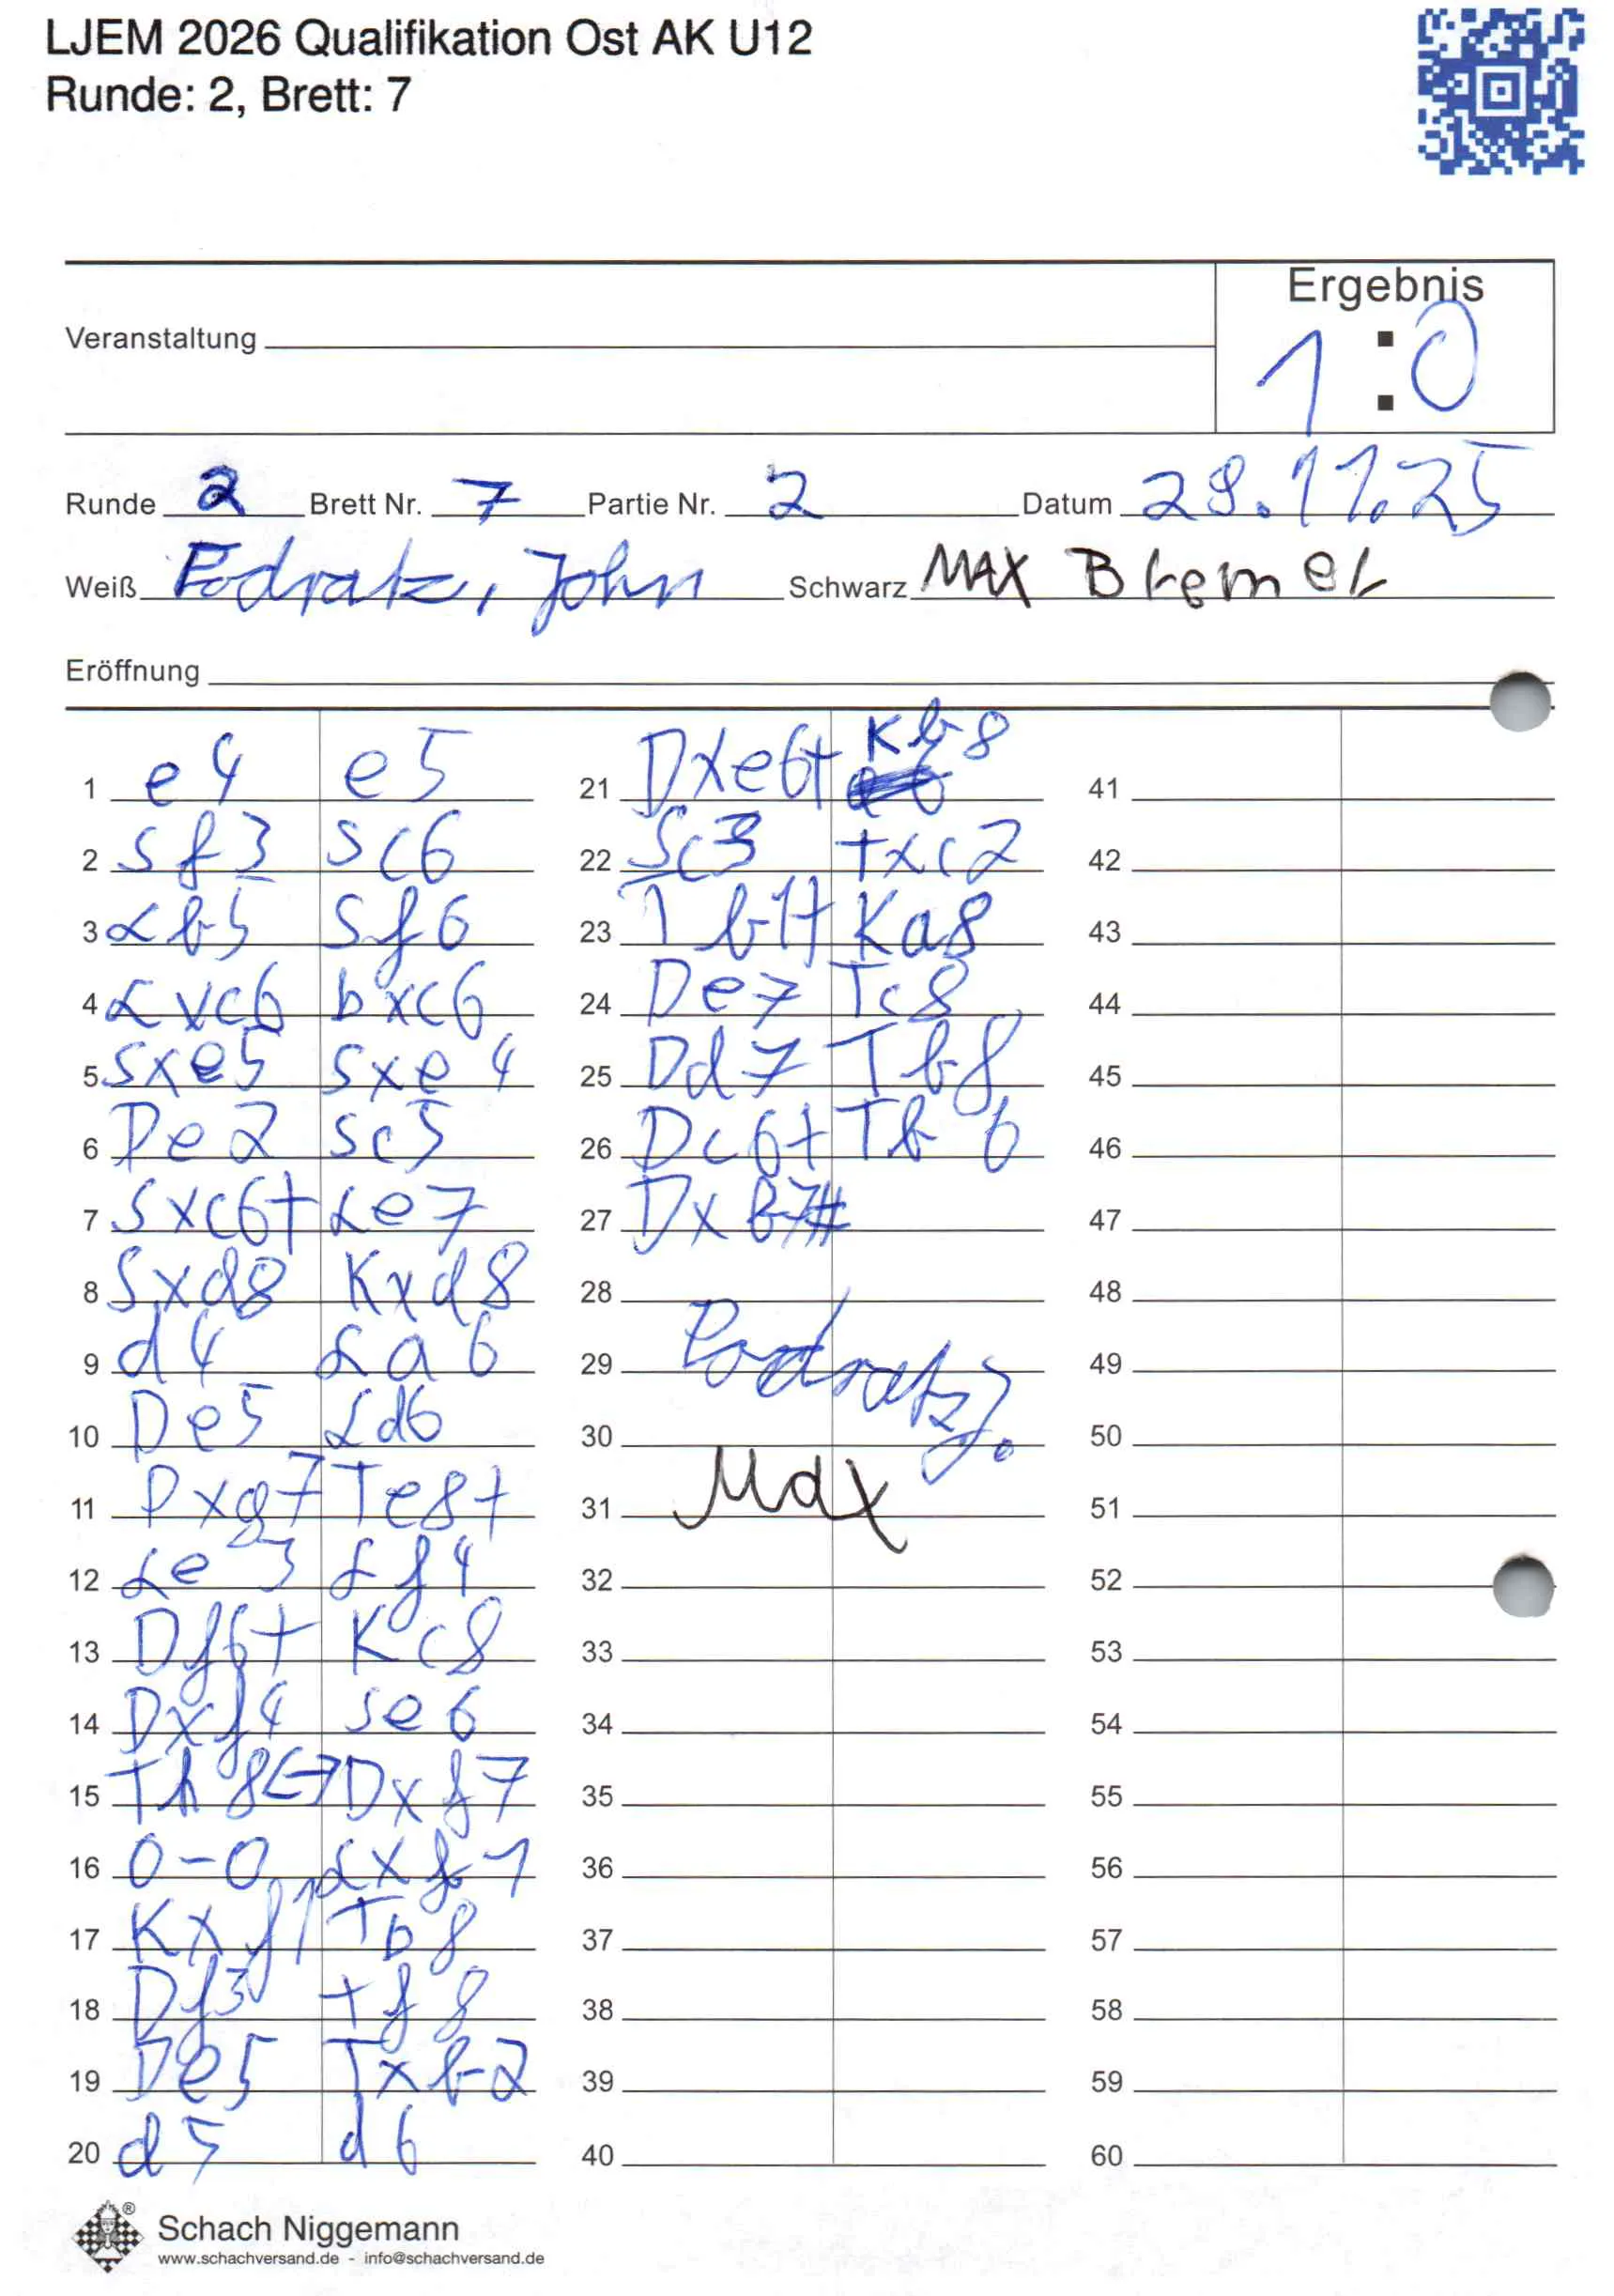 LJEM 2026 Qualifikation Ost AK U12
Runde: 2, Brett: 7
Ergebnis
1:0
Veranstaltung
Runde 2 Brett Nr. 7 Partie Nr. 2 Datum 29.11.25
Weiß Podratz, John Schwarz MAX Bremer
Eröffnung
1 e4 e5
2 Sf3 Sc6
3 Lb5 Sf6
4 Lxc6 bxc6
5 Sxe5 Sxe4
6 De2 Sc5
7 Sxc6+ Le7
8 Sxd8 Kxd8
9 d4 La6
10 De5 Ld6
11 Dxg7 Te8+
12 Le3 Lf4
13 Df6+ Kc8
14 Dxf4 Se6
15 Th8<->Dxf7
16 0-0 Lxf1
17 Kxf1 Tb8
18 Df3 Tf8
19 De5 Txb2
20 d5 d6
21 Dxe6+ Kb8
22 Sc3 Txc2
23 Tb1+ Ka8
24 De7 Tc8
25 Dd7 Tb8
26 Dc6+ Tb6
27 Dxb7#
28
29 Podratz J.
30
31 Max
32
33
34
35
36
37
38
39
40
41
42
43
44
45
46
47
48
49
50
51
52
53
54
55
56
57
58
59
60
Schach Niggemann
www.schachversand.de - info@schachversand.de